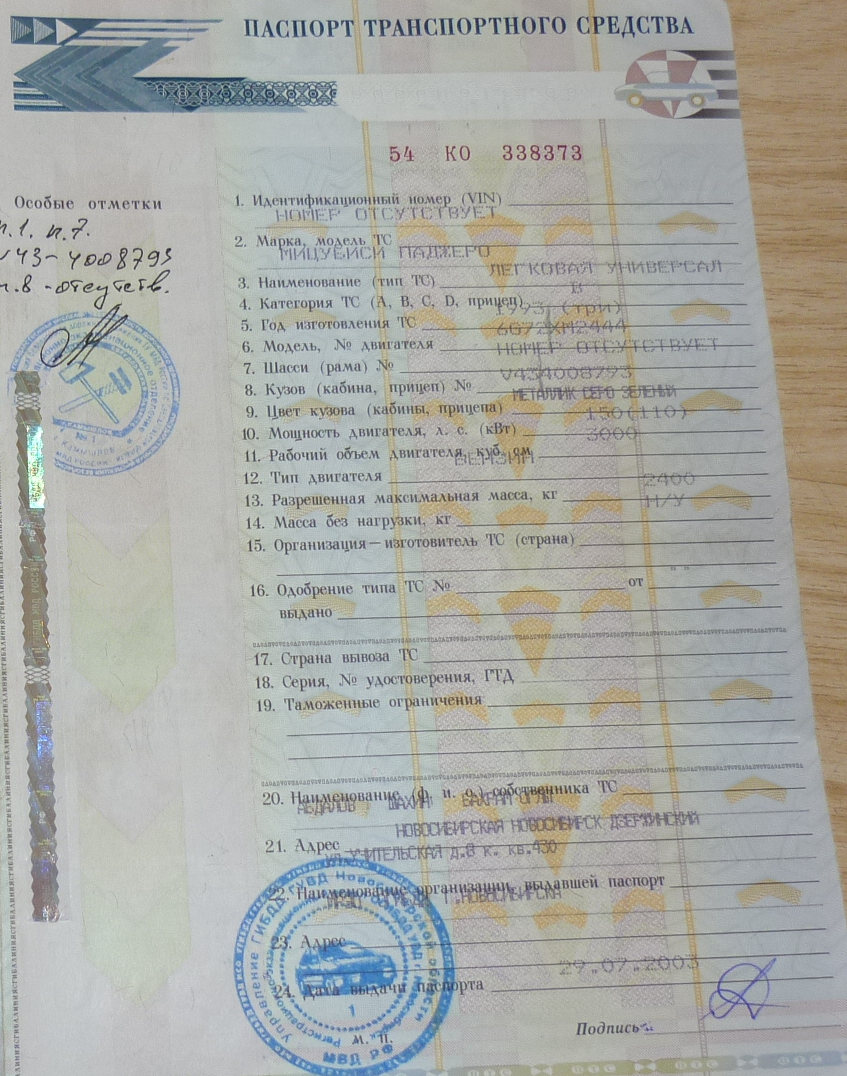 ПАСПОРТ ТРАНСПОРТНОГО СРЕДСТВА
54 КО 338373
Особые отметки
п.1. п.7.
V43-4008793
п.8 - отсутств.
1. Идентификационный номер (VIN)
НОМЕР ОТСУТСТВУЕТ
2. Марка, модель ТС
МИЦУБИСИ ПАДЖЕРО
ЛЕГКОВАЯ УНИВЕРСАЛ
3. Наименование (тип ТС)
B
4. Категория ТС (A, B, C, D, прицеп)
1993 (три)
5. Год изготовления ТС
6G72XM2444
6. Модель, № двигателя
НОМЕР ОТСУТСТВУЕТ
7. Шасси (рама) №
V434008793
8. Кузов (кабина, прицеп) №
МЕТАЛЛИК СЕРО ЗЕЛЕНЫЙ
9. Цвет кузова (кабины, прицепа)
150(110)
10. Мощность двигателя, л. с. (кВт)
3000
11. Рабочий объем двигателя, куб. см
БЕНЗИН
12. Тип двигателя
2400
13. Разрешенная максимальная масса, кг
Н/У
14. Масса без нагрузки, кг
15. Организация — изготовитель ТС (страна)
16. Одобрение типа ТС № от " "
выдано
17. Страна вывоза ТС
18. Серия, № удостоверения, ГТД
19. Таможенные ограничения
20. Наименование (ф. и. о.) собственника ТС
АБДАЛОВ ШАХИН БАХРАМ ОГЛЫ
НОВОСИБИРСКАЯ НОВОСИБИРСК ДЗЕРЖИНСКИЙ
21. Адрес
УЧИТЕЛЬСКАЯ д.8 к. кв.430
22. Наименование организации, выдавшей паспорт
Г.НОВОСИБИРСКА
23. Адрес
29.07.2003
24. Дата выдачи паспорта
Подпись
М. П.
Управление ГИБДД ГУВД Новосибирской области
1
МВД РФ